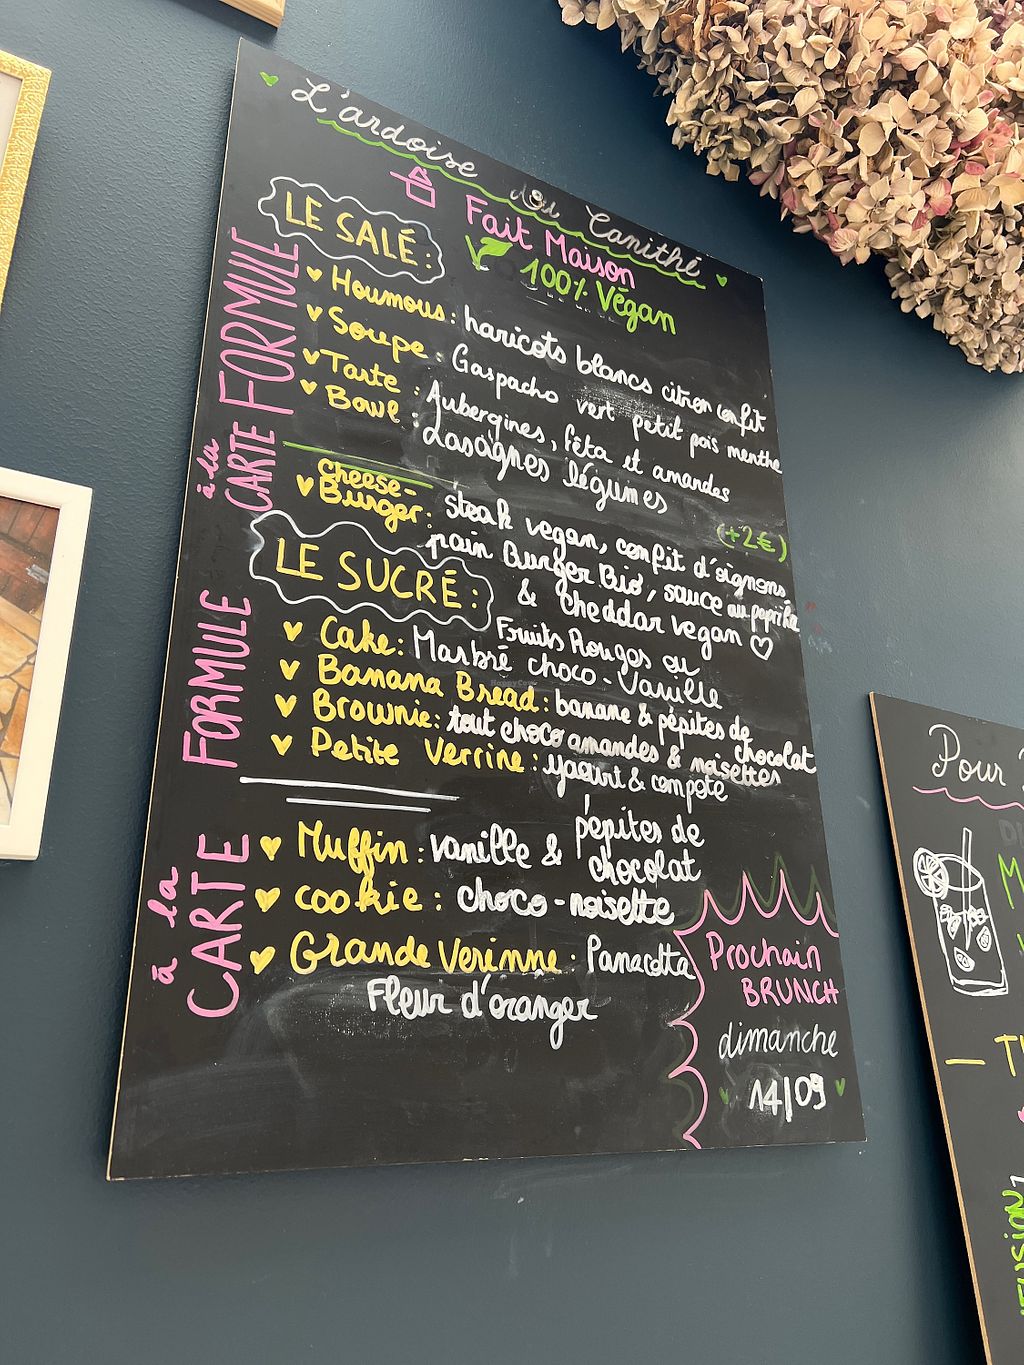 L'ardoise du Canithé
Fait Maison
100% Végan
LE SALÉ:
FORMULE
Houmous: haricots blancs citron confit
Soupe: Gaspacho vert petit pois menthe
Tarte: Aubergines, fêta et amandes
Bowl: Lasagnes légumes
à la CARTE
cheese-
Burger: steak vegan, confit d'oignons (+2€)
pain Burger Bio, sauce au paprika
& cheddar vegan
LE SUCRÉ:
FORMULE
Cake: Fruits Rouges ou
Marbré choco-Vanille
Banana Bread: banane & pépites de
chocolat
Brownie: tout choco amandes & noisettes
Petite Verrine: yaourt & compote
à la CARTE
Muffin: vanille & pépites de
chocolat
cookie: choco-noisette
Grande Verinne: Panacotta
Fleur d'oranger
Prochain
BRUNCH
dimanche
14/09
Pour